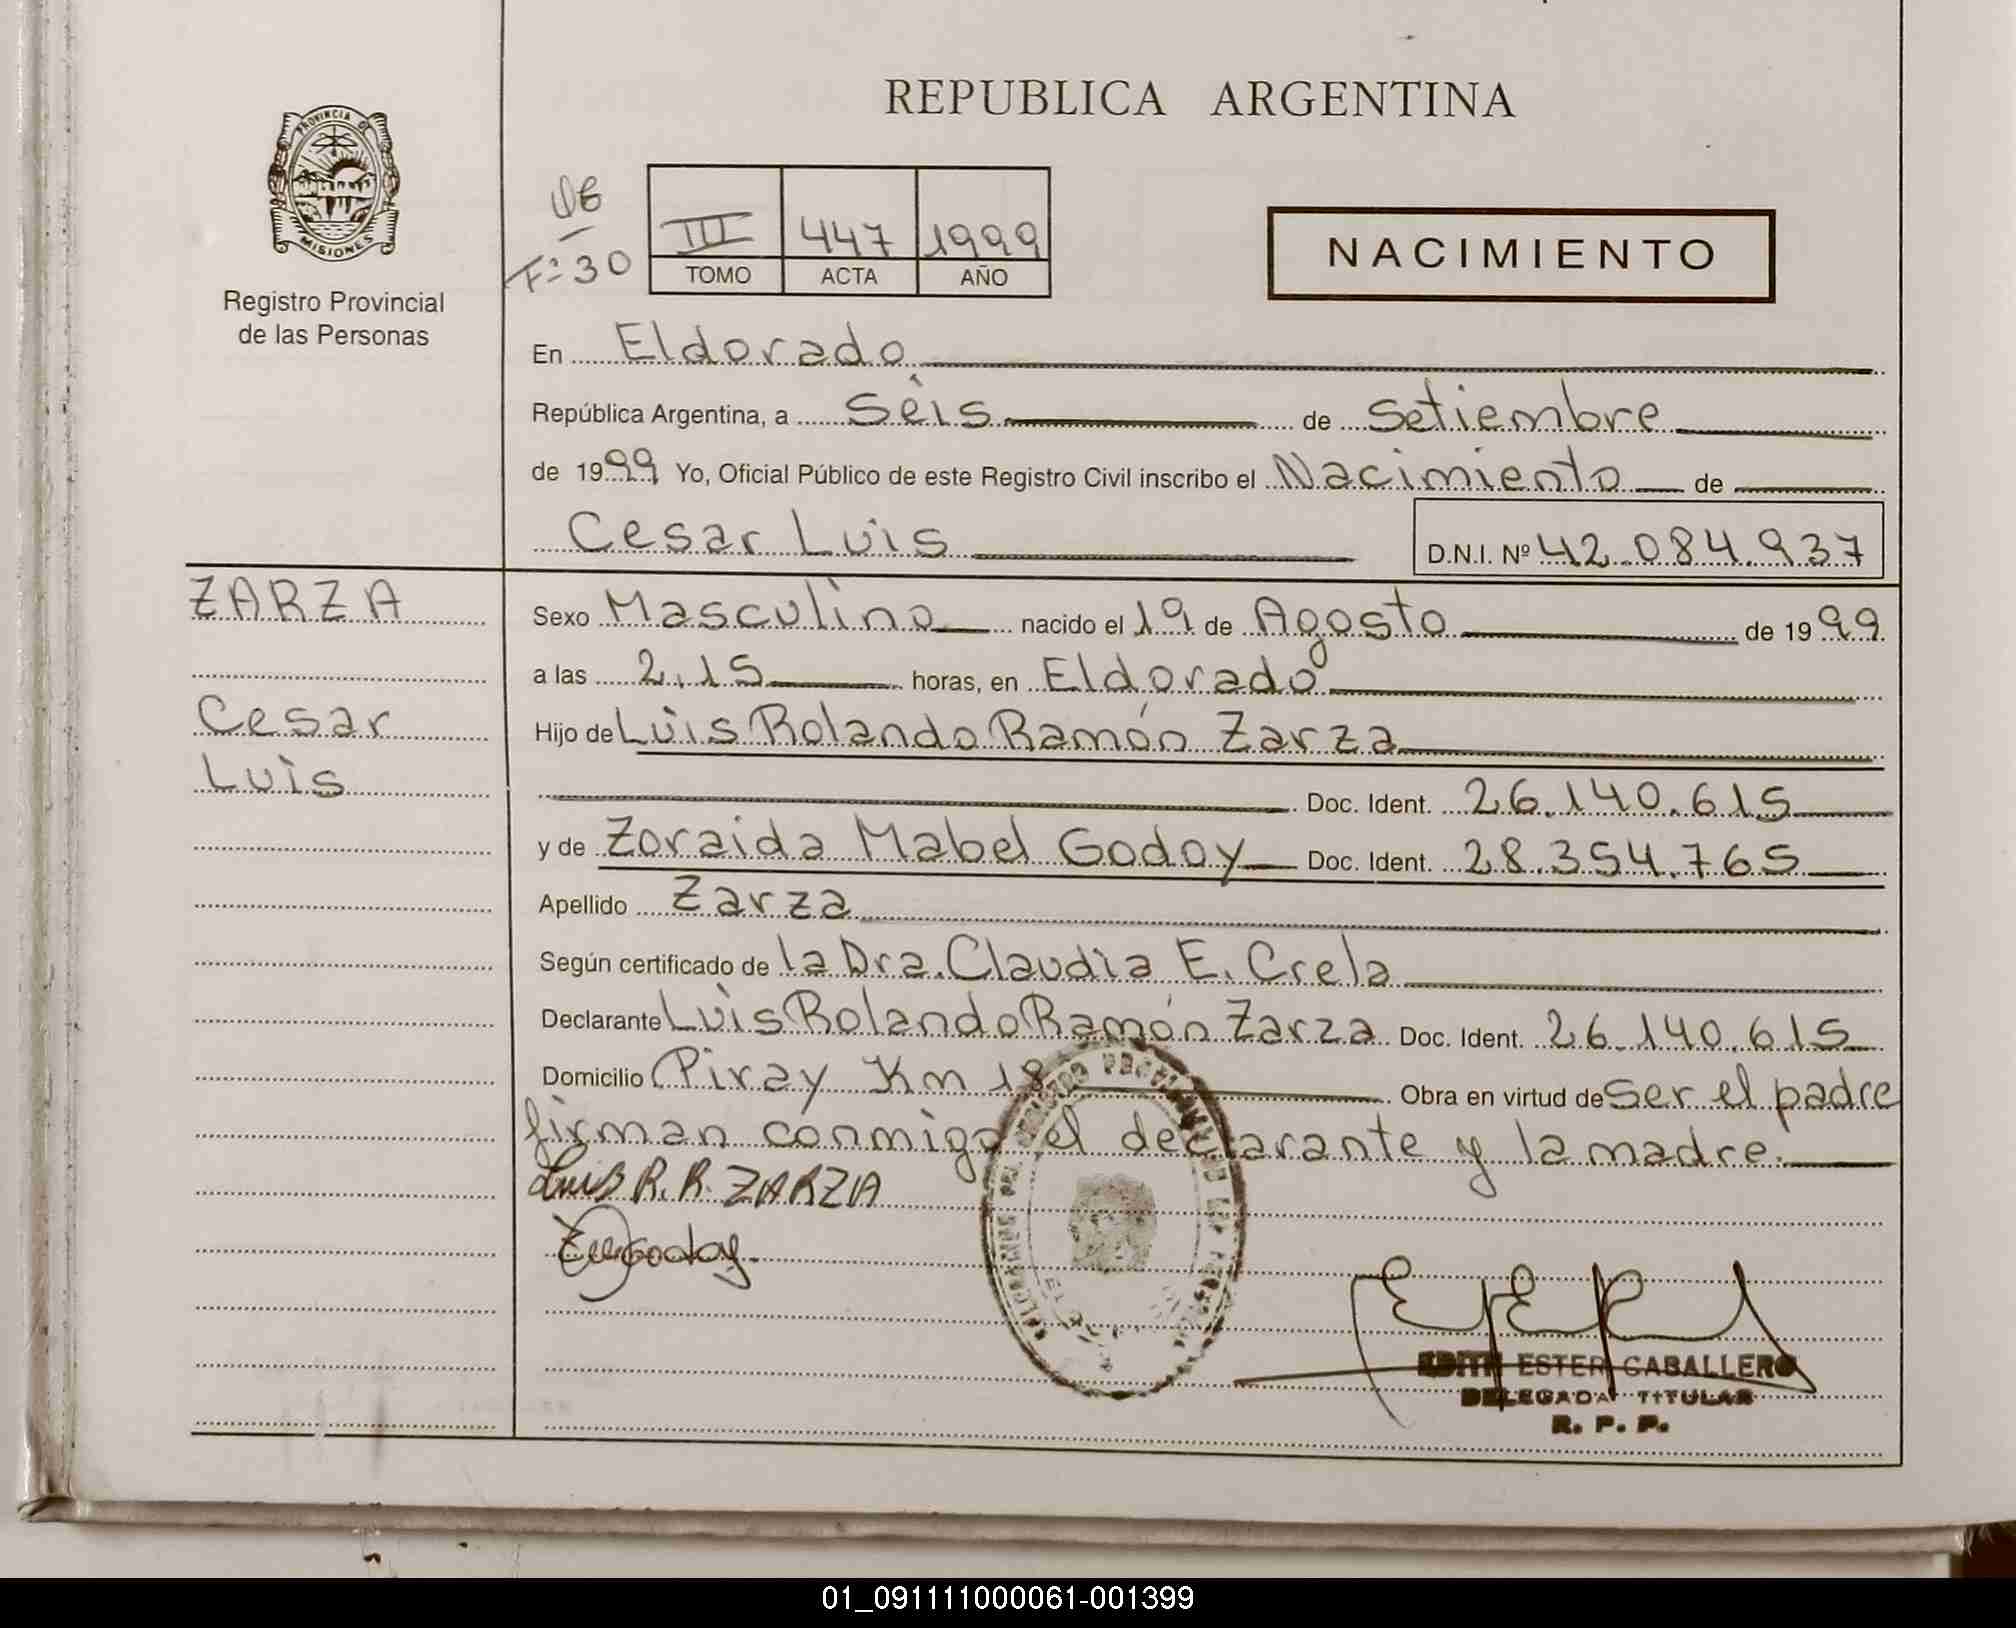 REPUBLICA ARGENTINA
PROVINCIA DE
MISIONES
Registro Provincial
de las Personas
F: 30
III 447 1999
TOMO ACTA AÑO
NACIMIENTO
En Eldorado
República Argentina, a Sèis de Setiembre
de 1999 Yo, Oficial Público de este Registro Civil inscribo el Nacimiento de
Cesar Luis D.N.I. Nº 42.084.937
ZARZA
Cesar
Luis
Sexo Masculino nacido el 19 de Agosto de 1999
a las 2.15 horas, en Eldorado
Hijo de Luis Rolando Ramón Zarza
Doc. Ident. 26.140.615
y de Zoraida Mabel Godoy Doc. Ident. 28.354.765
Apellido Zarza
Según certificado de la Dra. Claudia E. Crela
Declarante Luis Rolando Ramón Zarza Doc. Ident. 26.140.615
Domicilio Piray Km 18 Obra en virtud de ser el padre
firman conmigo el declarante y la madre.
Luis R. R. ZARZA
EDITH ESTER CABALLERO
DELEGADA TITULAR
R. P. P.
01_091111000061-001399